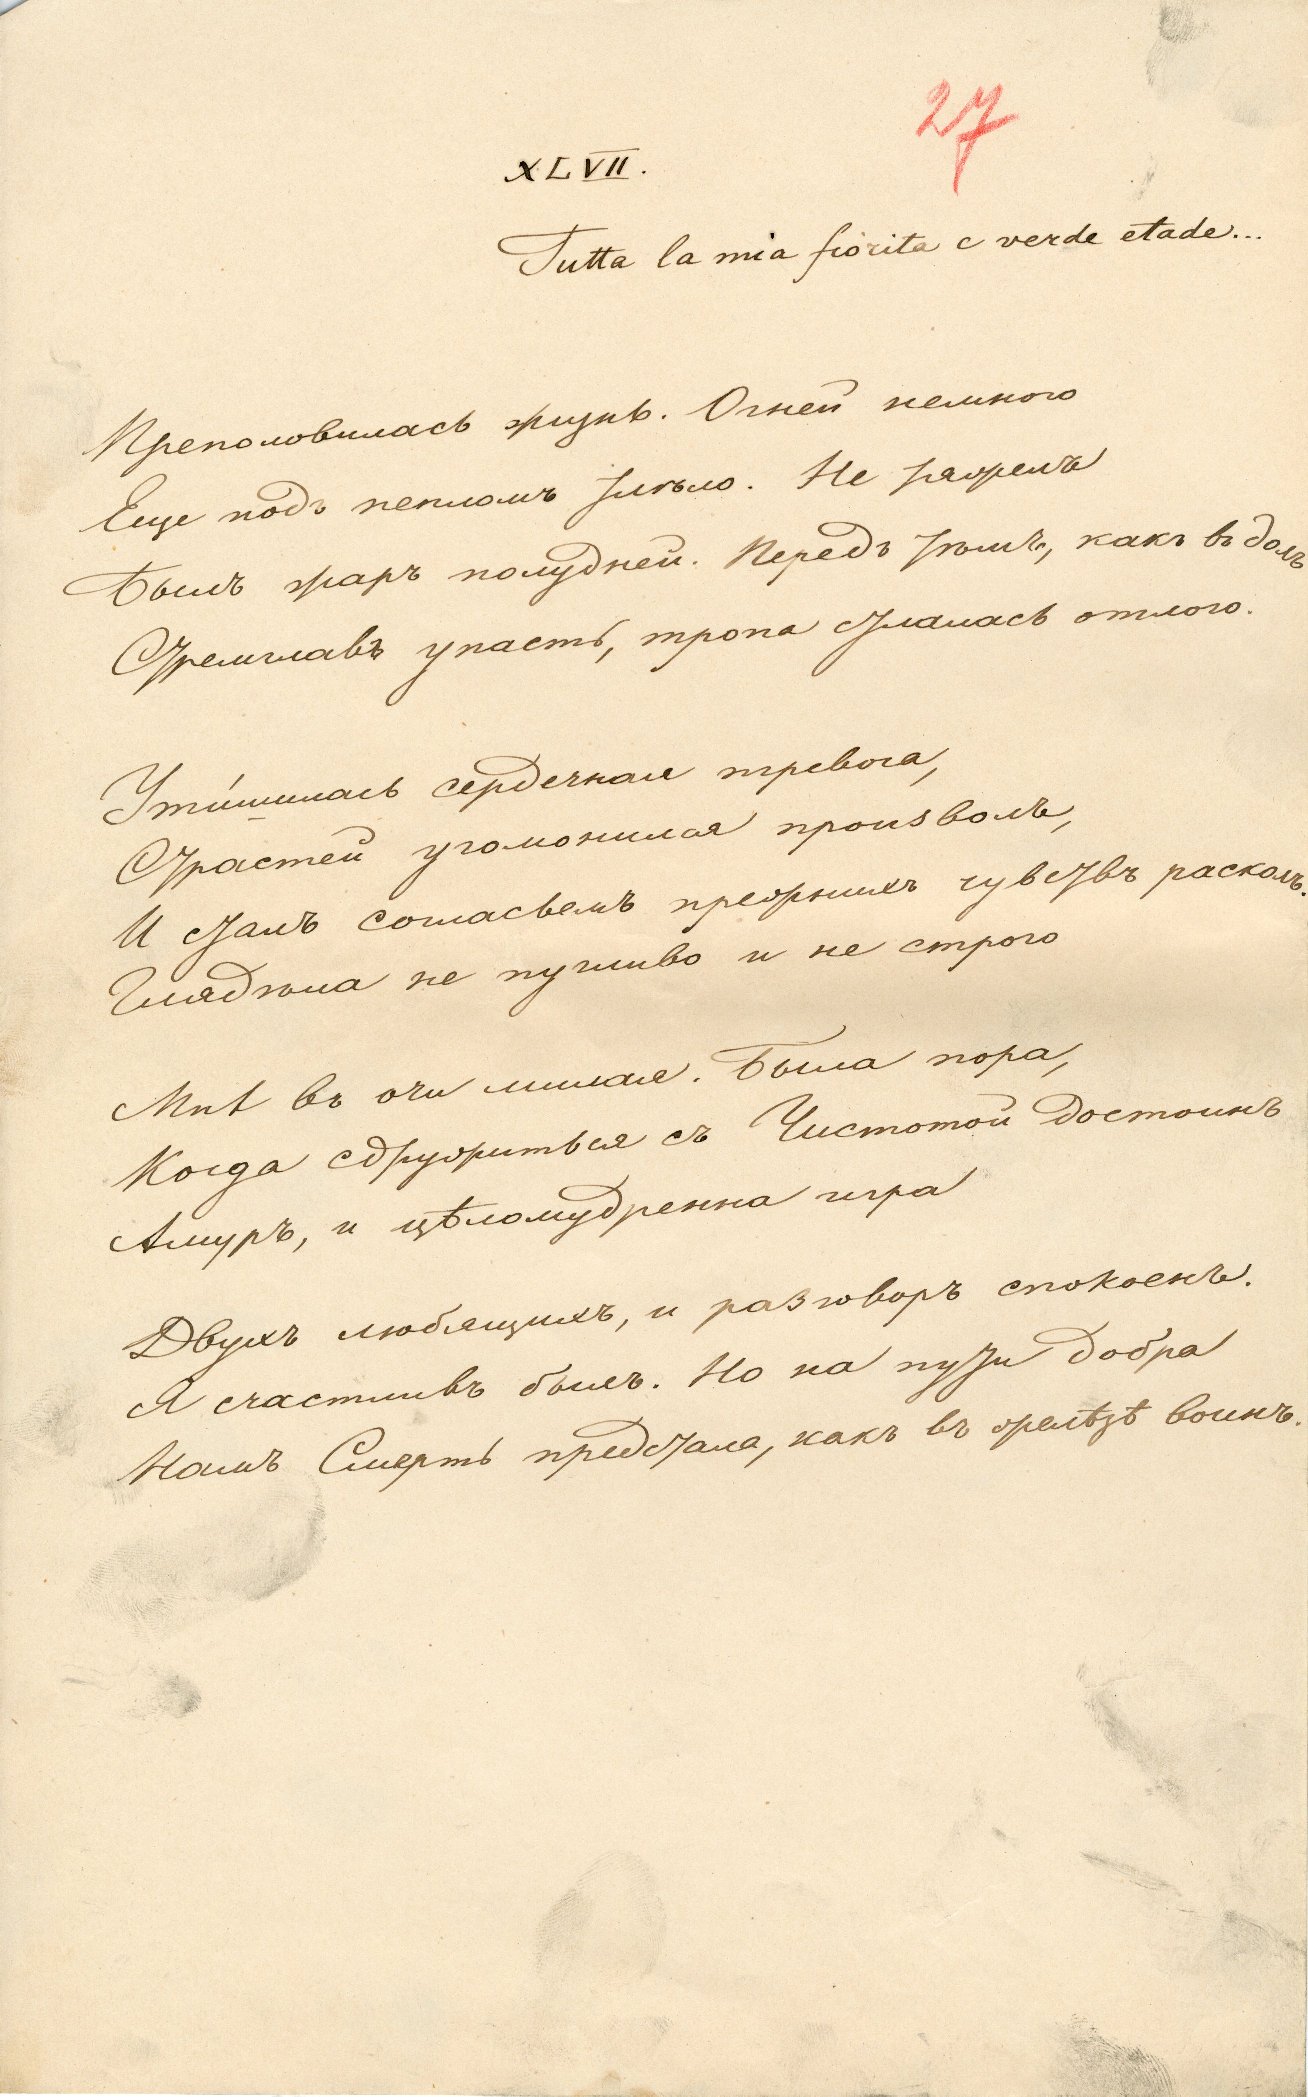 27
XLVII.
Tutta la mia fiorita e verde etade...
Преполовилась жизнь. Огней немного
Еще подъ пепломъ тлѣло. Не тяжелъ
Былъ жаръ полудней. Передъ тѣмъ, какъ въ долъ
Стремглавъ упасть, тропа стлалась отлого.
Ути́шилась сердечная тревога,
Страстей угомонился произволъ,
И сталъ согласьемъ прежнихъ чувствъ расколъ.
Глядѣла не пугливо и не строго
Мнѣ въ очи милая. Была пора,
Когда сдружиться съ Чистотой достоинъ
Амуръ, и цѣломудренна игра
Двухъ любящихъ, и разговоръ спокоенъ.
Я счастливъ былъ. Но на пути добра
Намъ Смерть предстала, какъ въ желѣзѣ воинъ.